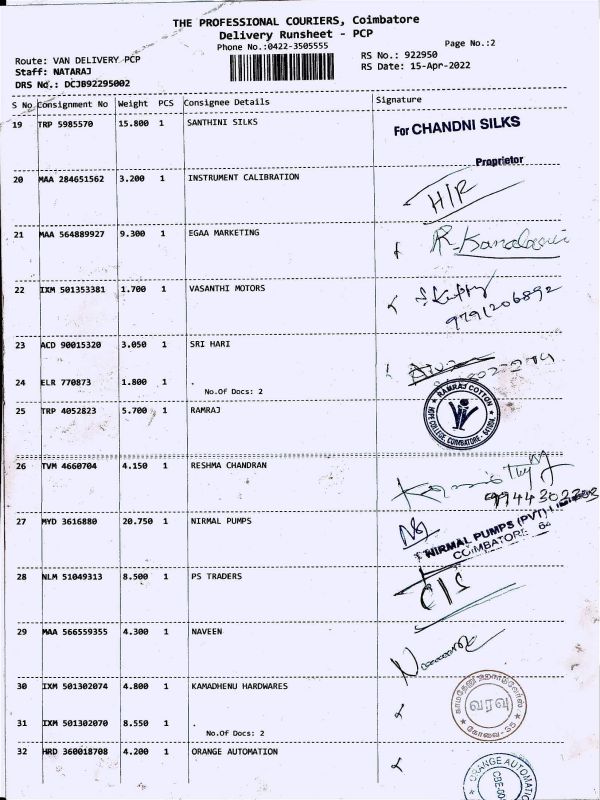 THE PROFESSIONAL COURIERS, Coimbatore
Delivery Runsheet - PCP
Phone No.:0422-3505555
Page No.:2
Route: VAN DELIVERY PCP
RS No.: 922950
Staff: NATARAJ
RS Date: 15-Apr-2022
DRS No.: DCJB92295002
S No Consignment No Weight PCS Consignee Details Signature
19 TRP 5985570 15.800 1 SANTHINI SILKS
For CHANDNI SILKS
Proprietor
20 MAA 284651562 3.200 1 INSTRUMENT CALIBRATION
H/R
21 MAA 564889927 9.300 1 EGAA MARKETING
22 IXM 501353381 1.700 1 VASANTHI MOTORS
9791206892
23 ACD 90015320 3.050 1 SRI HARI
24 ELR 770873 1.800 1 .
No.Of Docs: 2
25 TRP 4052823 5.700 1 RAMRAJ
RAMRAJ COTTON
HOPE COLLEGE, COIMBATORE
26 TVM 4660704 4.150 1 RESHMA CHANDRAN
27 MYD 3616880 20.750 1 NIRMAL PUMPS
NIRMAL PUMPS (PVT) LIMITED
COIMBATORE 64
28 NLM 51049313 8.500 1 PS TRADERS
29 MAA 566559355 4.300 1 NAVEEN
30 IXM 501302074 4.800 1 KAMADHENU HARDWARES
வரவு
கோவை-55
31 IXM 501302070 8.550 1 .
No.Of Docs: 2
32 HRD 360018708 4.200 1 ORANGE AUTOMATION
ORANGE AUTOMATI